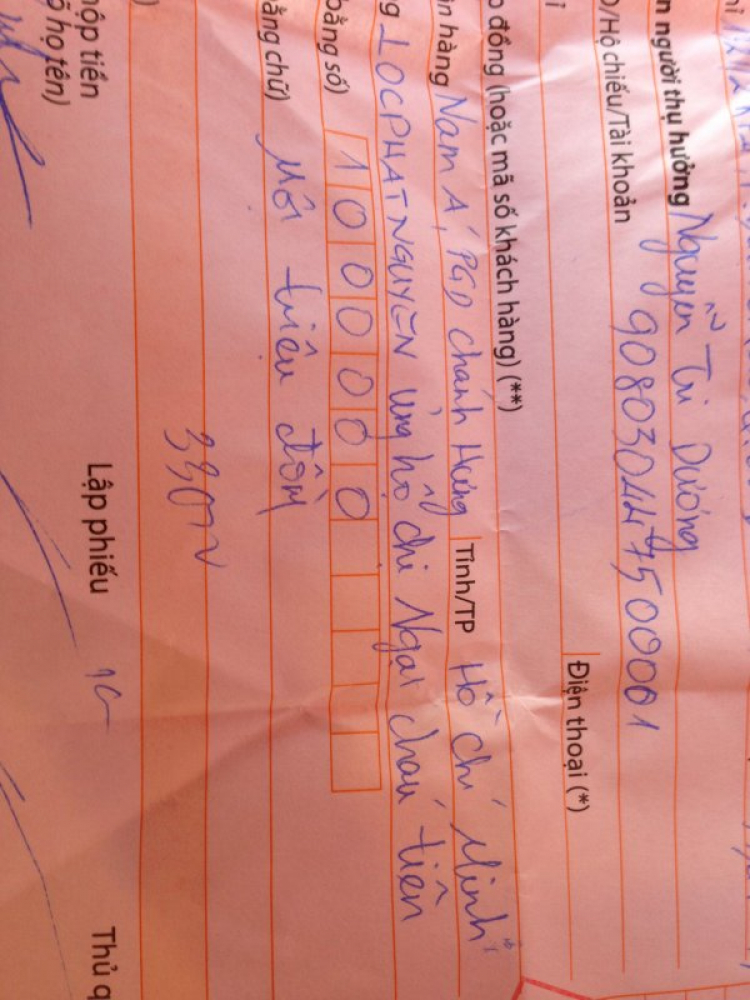 n người thụ hưởng Nguyễn Tri Dương
/Hộ chiếu/Tài khoản 908030447500001
Điện thoại (*)
p đồng (hoặc mã số khách hàng) (**)
n hàng Nam Á, PGD Chánh Hưng Tỉnh/TP Hồ Chí Minh
g LOCPHATNGUYEN ủng hộ chi Ngai chau tiên
bằng số) 1000000
ằng chữ) Môt triệu đồng
nộp tiền Lập phiếu Thủ q
õ họ tên)